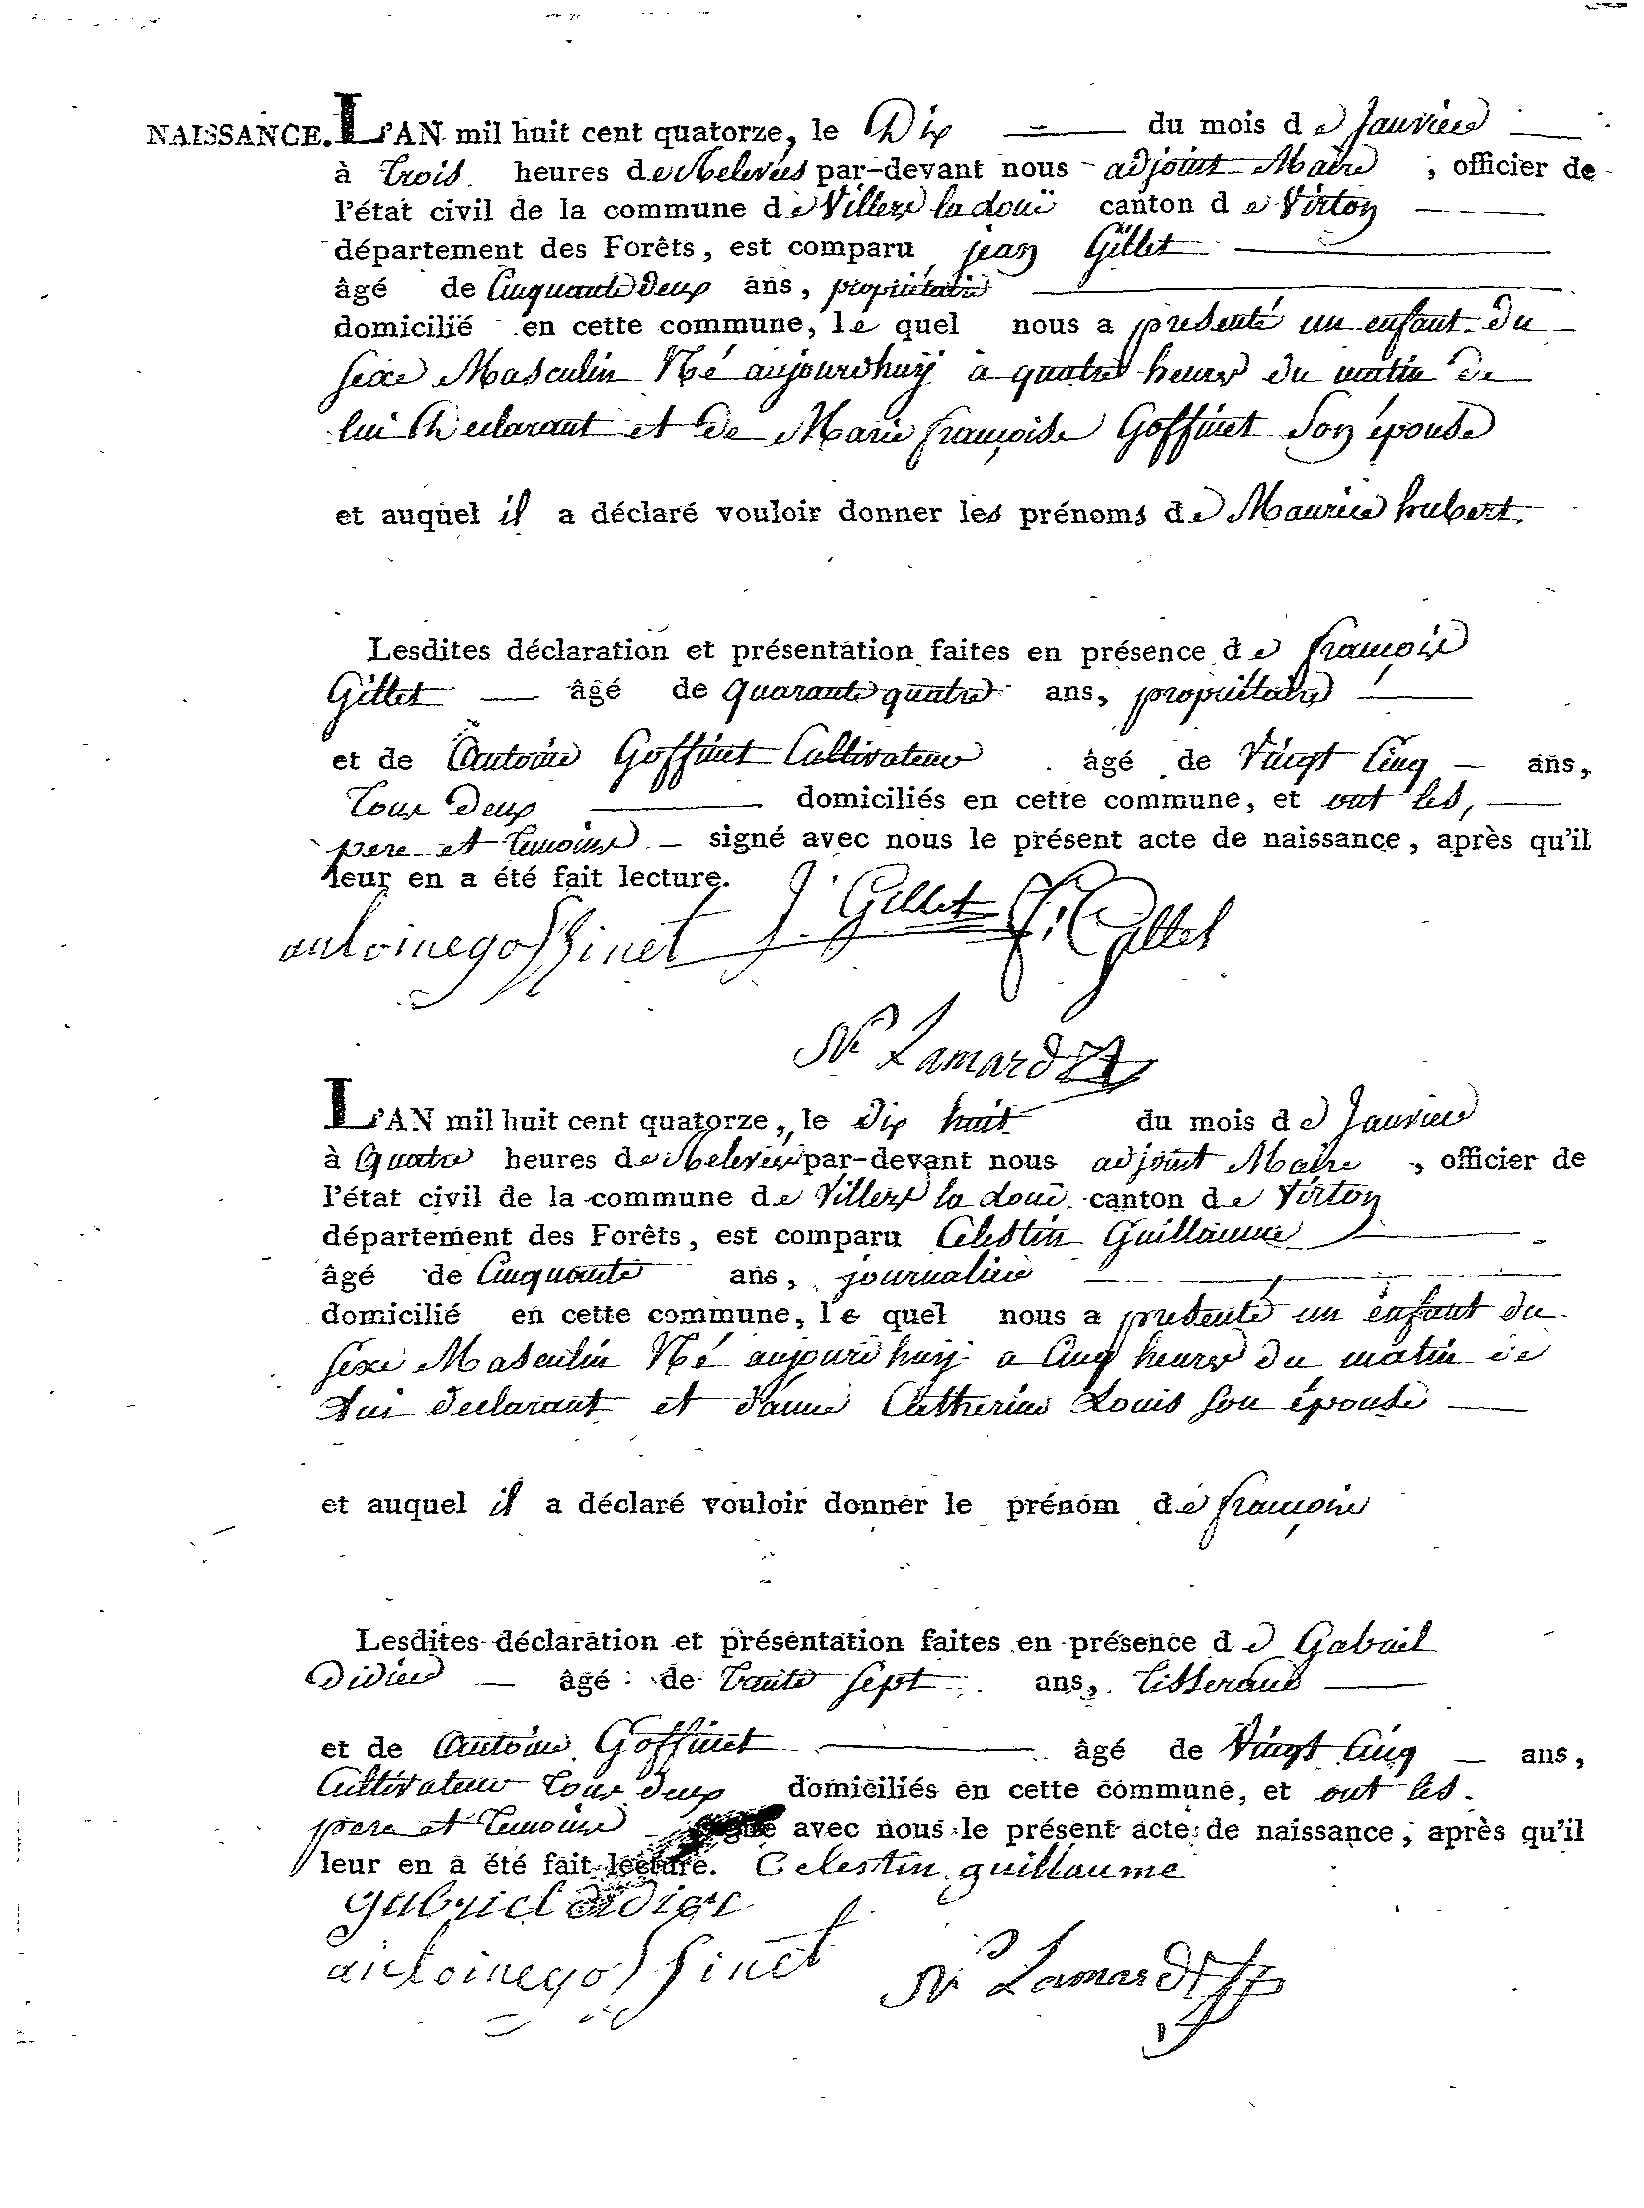 NAISSANCE. L'AN mil huit cent quatorze, le Dix du mois de Janvier
à trois heures de Relevées par-devant nous adjoint Maire, officier de
l'état civil de la commune de Villers la douë canton de Virton
département des Forêts, est comparu jean Gillet
âgé de Cinquante deux ans, propriétaire
domicilié en cette commune, le quel nous a presenté un enfant du
sexe Masculin Né aujourdhuÿ à quatre heures du matin de
lui Declarant et de Marie françoise Goffinet Son épouse
et auquel il a déclaré vouloir donner les prénoms de Maurice hubert.
Lesdites déclaration et présentation faites en présence de françois
Gillet âgé de quarante quatre ans, propriétaire
et de Antoine Goffinet Cultivateur âgé de Vingt Cinq ans,
tous deux domiciliés en cette commune, et ont les,
pere et temoins signé avec nous le présent acte de naissance, après qu'il
leur en a été fait lecture. J. Gillet f. Gillet
antoinegoffinet
Ns Lamard
L'AN mil huit cent quatorze, le dix huit du mois de Janvier
à Quatre heures de Relevées par-devant nous adjoint Maire, officier de
l'état civil de la commune de Villers la douë canton de Virton
département des Forêts, est comparu Celestin Guillaume
âgé de Cinquante ans, journalier
domicilié en cette commune, le quel nous a presenté un enfant du
sexe Masculin Né aujourdhuÿ a Cinq heures du matin de
Lui declarant et d'anne Catherine Louis son épouse
et auquel il a déclaré vouloir donner le prénom de françois
Lesdites déclaration et présentation faites en présence de Gabriel
Didier âgé de trente sept ans, tisserand
et de Antoine Goffinet âgé de Vingt Cinq ans,
Cultivateur tous deux domiciliés en cette commune, et ont les
pere et temoins signé avec nous le présent acte de naissance, après qu'il
leur en a été fait lecture. Celestin guillaume
gabriel didier
antoinegoffinet Ns Lamard